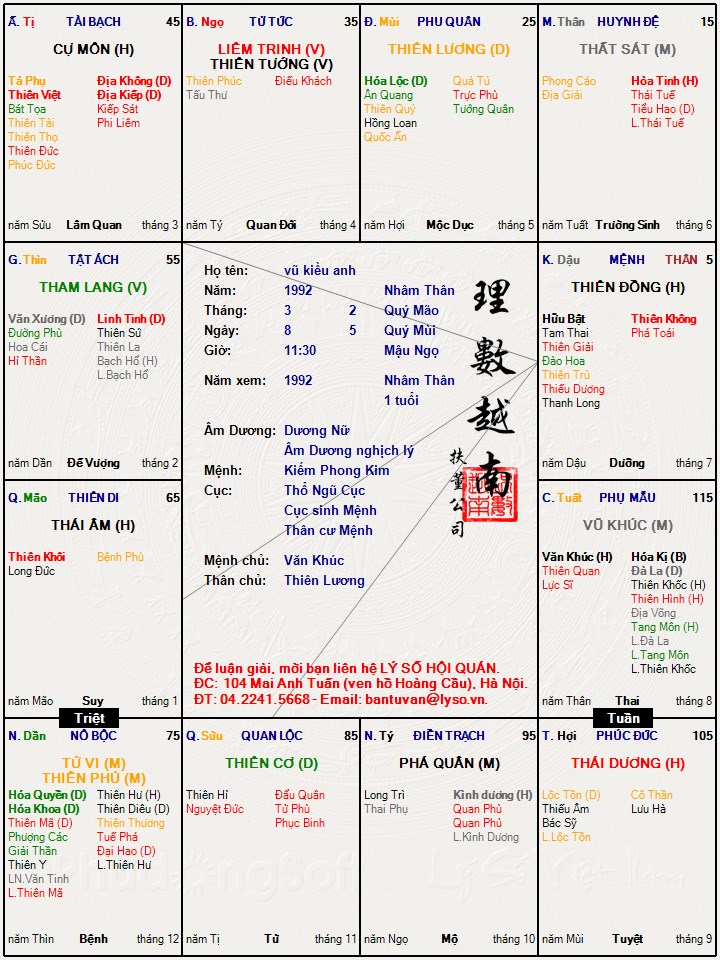 Ấ. Tị TÀI BẠCH 45
CỰ MÔN (H)
Tả Phụ Địa Không (D)
Thiên Việt Địa Kiếp (D)
Bát Tọa Kiếp Sát
Thiên Tài Phi Liêm
Thiên Thọ
Thiên Đức
Phúc Đức
năm Sửu Lâm Quan tháng 3
B. Ngọ TỬ TỨC 35
LIÊM TRINH (V)
THIÊN TƯỚNG (V)
Thiên Phúc Điếu Khách
Tấu Thư
năm Tý Quan Đới tháng 4
Đ. Mùi PHU QUÂN 25
THIÊN LƯƠNG (D)
Hóa Lộc (D) Quả Tú
Ân Quang Trực Phù
Thiên Quý Tướng Quân
Hồng Loan
Quốc Ấn
năm Hợi Mộc Dục tháng 5
M. Thân HUYNH ĐỆ 15
THẤT SÁT (M)
Phong Cáo Hỏa Tinh (H)
Địa Giải Thái Tuế
Tiểu Hao (D)
L.Thái Tuế
năm Tuất Trường Sinh tháng 6
G. Thìn TẬT ÁCH 55
THAM LANG (V)
Văn Xương (D) Linh Tinh (D)
Đường Phù Thiên Sứ
Hoa Cái Thiên La
Hỉ Thần Bạch Hổ (H)
L.Bạch Hổ
năm Dần Đế Vượng tháng 2
Họ tên: vũ kiều anh
Năm: 1992 Nhâm Thân
Tháng: 3 2 Quý Mão
Ngày: 8 5 Quý Mùi
Giờ: 11:30 Mậu Ngọ
Năm xem: 1992 Nhâm Thân
1 tuổi
Âm Dương: Dương Nữ
Âm Dương nghịch lý
Mệnh: Kiếm Phong Kim
Cục: Thổ Ngũ Cục
Cục sinh Mệnh
Thân cư Mệnh
Mệnh chủ: Văn Khúc
Thân chủ: Thiên Lương
理數越南
扶董公司
Để luận giải, mời bạn liên hệ LÝ SỐ HỘI QUÁN.
ĐC: 104 Mai Anh Tuấn (ven hồ Hoàng Cầu), Hà Nội.
ĐT: 04.2241.5668 - Email: bantuvan@lyso.vn.
K. Dậu MỆNH THÂN 5
THIÊN ĐỒNG (H)
Hữu Bật Thiên Không
Tam Thai Phá Toái
Thiên Giải
Đào Hoa
Thiên Trù
Thiếu Dương
Thanh Long
năm Dậu Dưỡng tháng 7
Q. Mão THIÊN DI 65
THÁI ÂM (H)
Thiên Khôi Bệnh Phù
Long Đức
năm Mão Suy tháng 1
C. Tuất PHỤ MẪU 115
VŨ KHÚC (M)
Văn Khúc (H) Hóa Kị (B)
Thiên Quan Đà La (D)
Lực Sĩ Thiên Khốc (H)
Thiên Hình (H)
Địa Võng
Tang Môn (H)
L.Đà La
L.Tang Môn
L.Thiên Khốc
năm Thân Thai tháng 8
Triệt
Tuần
N. Dần NÔ BỘC 75
TỬ VI (M)
THIÊN PHỦ (M)
Hóa Quyền (D) Thiên Hư (H)
Hóa Khoa (D) Thiên Diêu (D)
Thiên Mã (D) Thiên Thương
Phượng Các Tuế Phá
Giải Thần Đại Hao (D)
Thiên Y L.Thiên Hư
LN.Văn Tinh
L.Thiên Mã
năm Thìn Bệnh tháng 12
Q. Sửu QUAN LỘC 85
THIÊN CƠ (D)
Thiên Hỉ Đẩu Quân
Nguyệt Đức Tử Phù
Phục Binh
năm Tị Tử tháng 11
N. Tý ĐIỀN TRẠCH 95
PHÁ QUÂN (M)
Long Trì Kình dương (H)
Thai Phụ Quan Phù
Quan Phủ
L.Kình Dương
năm Ngọ Mộ tháng 10
T. Hợi PHÚC ĐỨC 105
THÁI DƯƠNG (H)
Lộc Tồn (D) Cô Thần
Thiếu Âm Lưu Hà
Bác Sỹ
L.Lộc Tồn
năm Mùi Tuyệt tháng 9